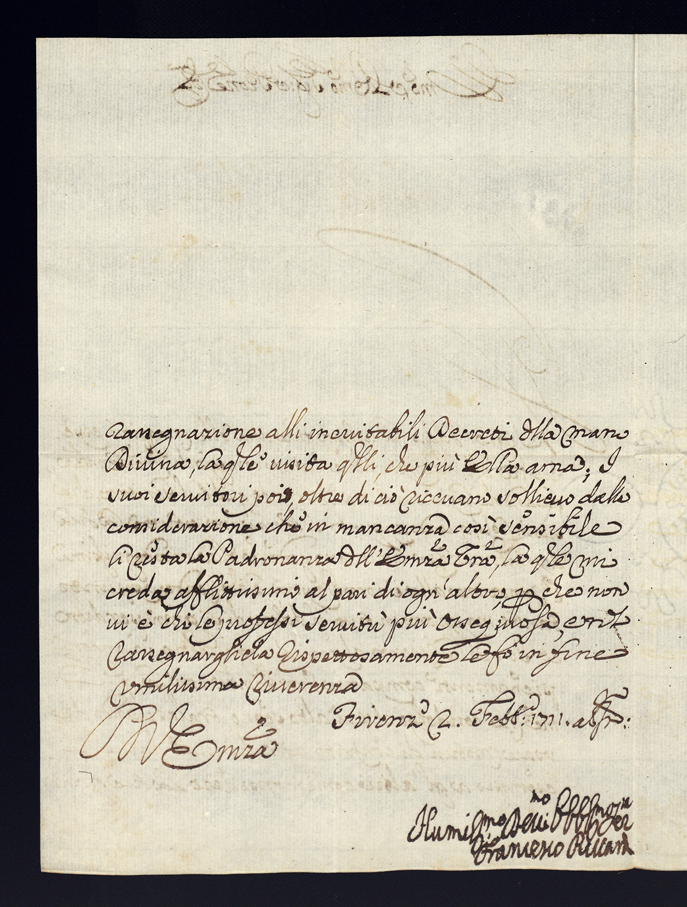 Rassegnazione alli inevitabili Decreti dlla mano
Divina, la qle visita qlli, che più Ella ama; I
suoi servitori poi, oltre di ciò ricevano sollievo dalla
considerazione che in mancanza così sensibile
li resta la Padronanza dll' Emza Vra, la qle mi
creda afflittissimo al pari di ogn' altro, che non
vi è chi le professi servitù più ossequiosa, e nel
Rassegnargliela rispettosamente le fo in fine
umilissima riverenza
Firenze 2. Febb. 1711. ab
Emza
Humilissmo Devmo
Francesco Riccardi